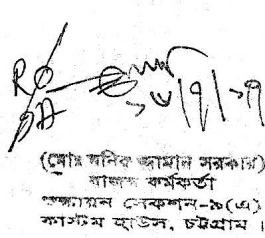 RO
(মোঃ মনিক জামান সরকার)
রাজস্ব কর্মকর্তা
শুল্কায়ন সেকশন-৯(এ)
কাস্টম হাউস, চট্টগ্রাম।